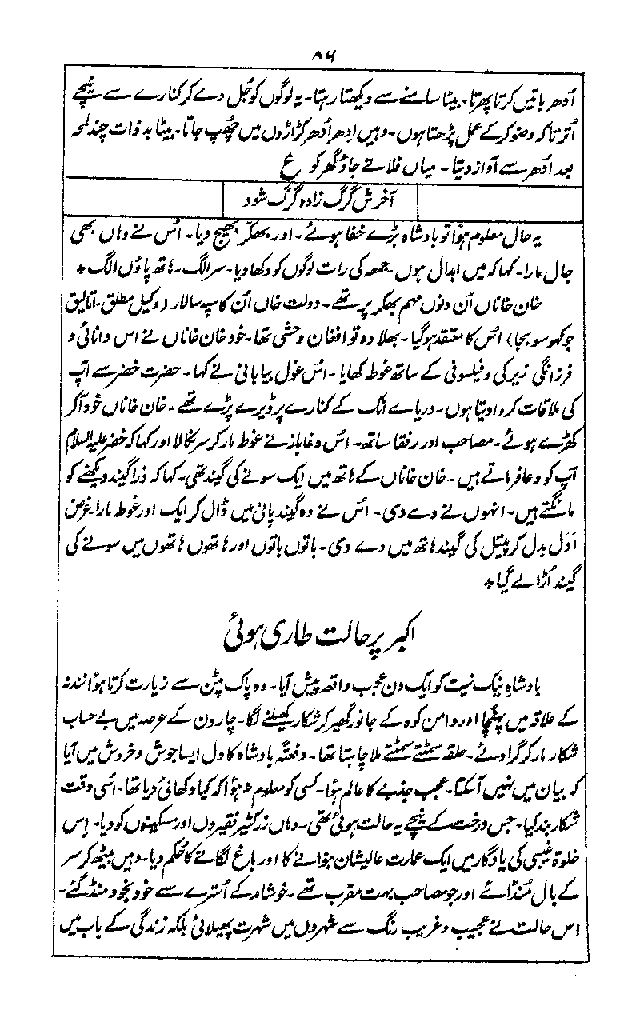 ۸۶
اُدھر باتیں کرتا پھرتا۔ بیٹا سامنے سے دیکھتا رہتا۔ یہ لوگوں کو جُل دے کر کنارے سے نیچے
اُترتا کہ وضو کر کے عمل پڑھتا ہوں۔ وہیں اِدھر اُدھر کڑاڑوں میں چھپ جاتا۔ بیٹا بدذات چند لمحہ
بعد اُدھر سے آواز دیتا۔ میاں فلانے جاؤ گھر کو ع
آخرش گرگ زادہ گرگ شود
یہ حال معلوم ہؤا تو بادشاہ بڑے خفا ہوئے۔ اور بھکر بھیج دیا۔ اُس نے وہاں بھی
جال مارا۔ کہا کہ میں ابدال ہوں۔ جمعہ کی رات لوگوں کو دکھا دیا۔ سر الگ۔ ہاتھ پاؤں الگ *
خان خاناں اُن دنوں مہم بھکر پر تھے۔ دولت خاں اُن کا سپہ سالار (وکیل مطلق۔ اتالیق
جو کہو سو بجا) اُس کا معتقد ہو گیا۔ بھلا وہ تو افغان وحشی تھا۔ خود خان خاناں نے اس دانائی و
فرزانگی زیرکی و فیلسوفی کے ساتھ غوطہ کھایا۔ اُس غول بیابانی نے کہا۔ حضرت خضر سے آپ
کی ملاقات کروا دیتا ہوں۔ دریائے اٹک کے کنارے پر ڈیرے پڑے تھے۔ خان خاناں خود آکر
کھڑے ہوئے۔ مصاحب اور رفقا ساتھ۔ اُس دغاباز نے غوطہ مار کر سر نکالا اور کہا کہ خضر علیہ السلام
آپ کو دعا فرماتے ہیں۔ خان خاناں کے ہاتھ میں ایک سونے کی گیند تھی۔ کہا کہ ذرا گیند دیکھنے کو
مانگتے ہیں۔ انہوں نے دے دی۔ اُس نے وہ گیند پانی میں ڈال کر ایک اور غوطہ مارا۔ غرض
اَدَل بدل کر پیتل کی گیند ہاتھ میں دے دی۔ باتوں باتوں اور ہاتھوں ہاتھوں میں سونے کی
گیند اُڑا لے گیا *
اکبر پر حالت طاری ہوئی
بادشاہ نیک نیت کو ایک دن عجب واقعہ پیش آیا۔ وہ پاک پٹن سے زیارت کرتا ہؤا نندنہ
کے علاقہ میں پہنچا اور دامن کوہ کے جانور گھیر کر شکار کھیلنے لگا۔ چار دن کے عرصہ میں بے حساب
شکار مار کر گرا دئے۔ حلقہ سمٹتے سمٹتے ملا چاہتا تھا۔ دفعتہً بادشاہ کا دل ایسا جوش و خروش میں آیا
کہ بیان میں نہیں آسکتا۔ عجب جذبے کا عالم ہؤا۔ کسی کو معلوم نہ ہؤا کہ کیا دکھائی دیا تھا۔ اُسی وقت
شکار بند کیا۔ جس درخت کے نیچے یہ حالت ہوئی تھی۔ وہاں زر کثیر فقیروں اور مسکینوں کو دیا۔ اِس
خلوۃ غیبی کی یادگار میں ایک عمارت عالیشان بنوانے کا اور باغ لگانے کا حُکم دیا۔ وہیں بیٹھ کر سر
کے بال مُنڈائے اور جو مصاحب بہت مقرب تھے۔ خوشامد کے اُسترے سے خود بخود منڈ گئے۔
اس حالت نے عجیب و غریب رنگ سے شہروں میں شہرت پھیلائی بلکہ زندگی کے باب میں